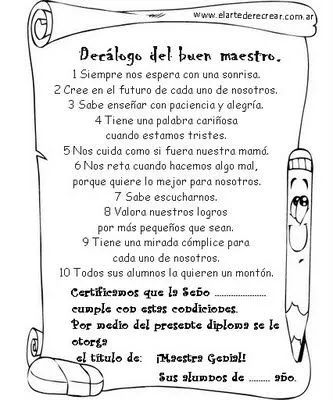 www.elartederecrear.com.ar
Decálogo del buen maestro.
1 Siempre nos espera con una sonrisa.
2 Cree en el futuro de cada uno de nosotros.
3 Sabe enseñar con paciencia y alegría.
4 Tiene una palabra cariñosa
cuando estamos tristes.
5 Nos cuida como si fuera nuestra mamá.
6 Nos reta cuando hacemos algo mal,
porque quiere lo mejor para nosotros.
7 Sabe escucharnos.
8 Valora nuestros logros
por más pequeños que sean.
9 Tiene una mirada cómplice para
cada uno de nosotros.
10 Todos sus alumnos la quieren un montón.
Certificamos que la Seño ......................
cumple con estas condiciones.
Por medio del presente diploma se le
otorga
el título de: ¡Maestra Genial!
Sus alumnos de ......... año.